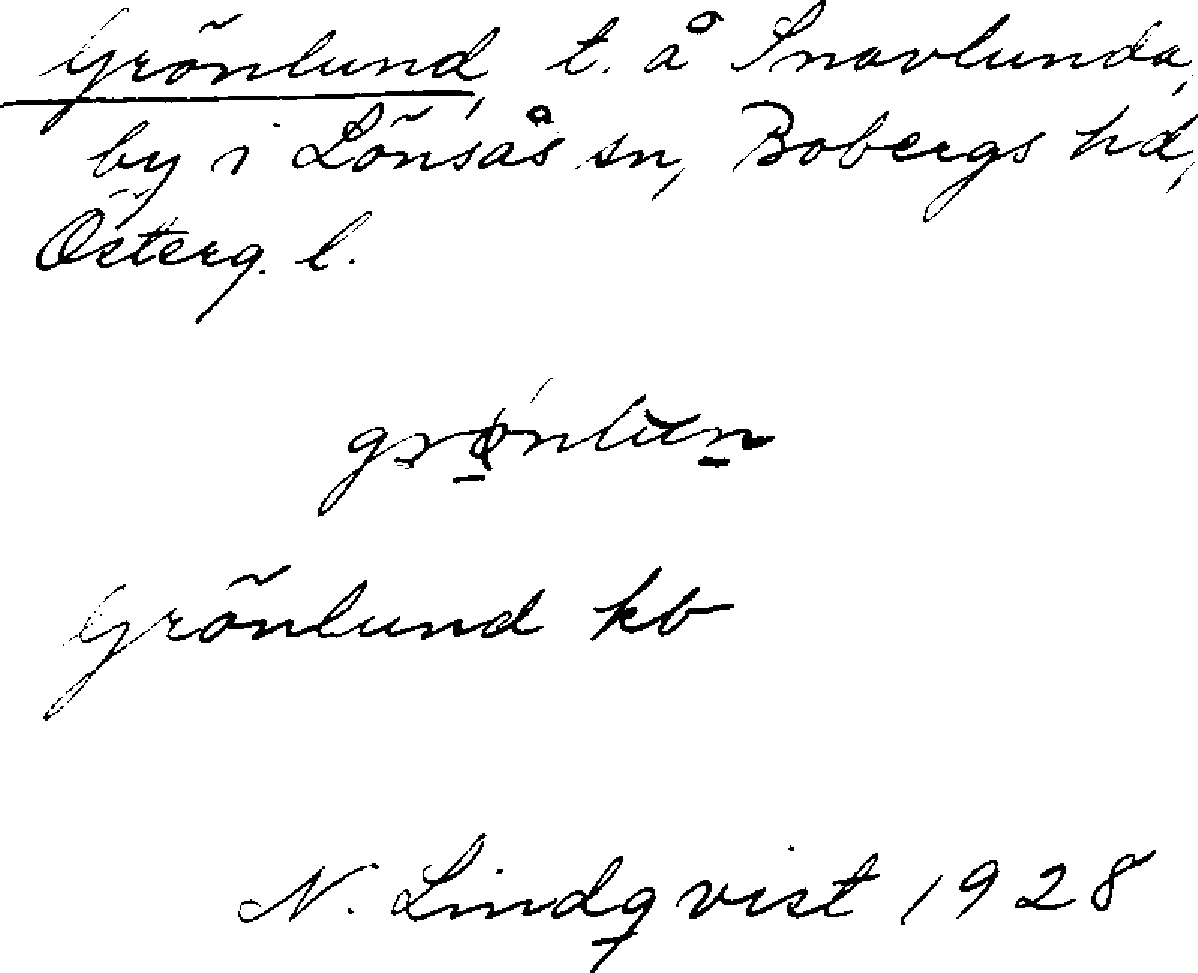 Grönlund, t. å Snavlunda,
by i Lönsås sn, Bobergs hd,
Österg. l.
Grönlund kb
N. Lindqvist 1928